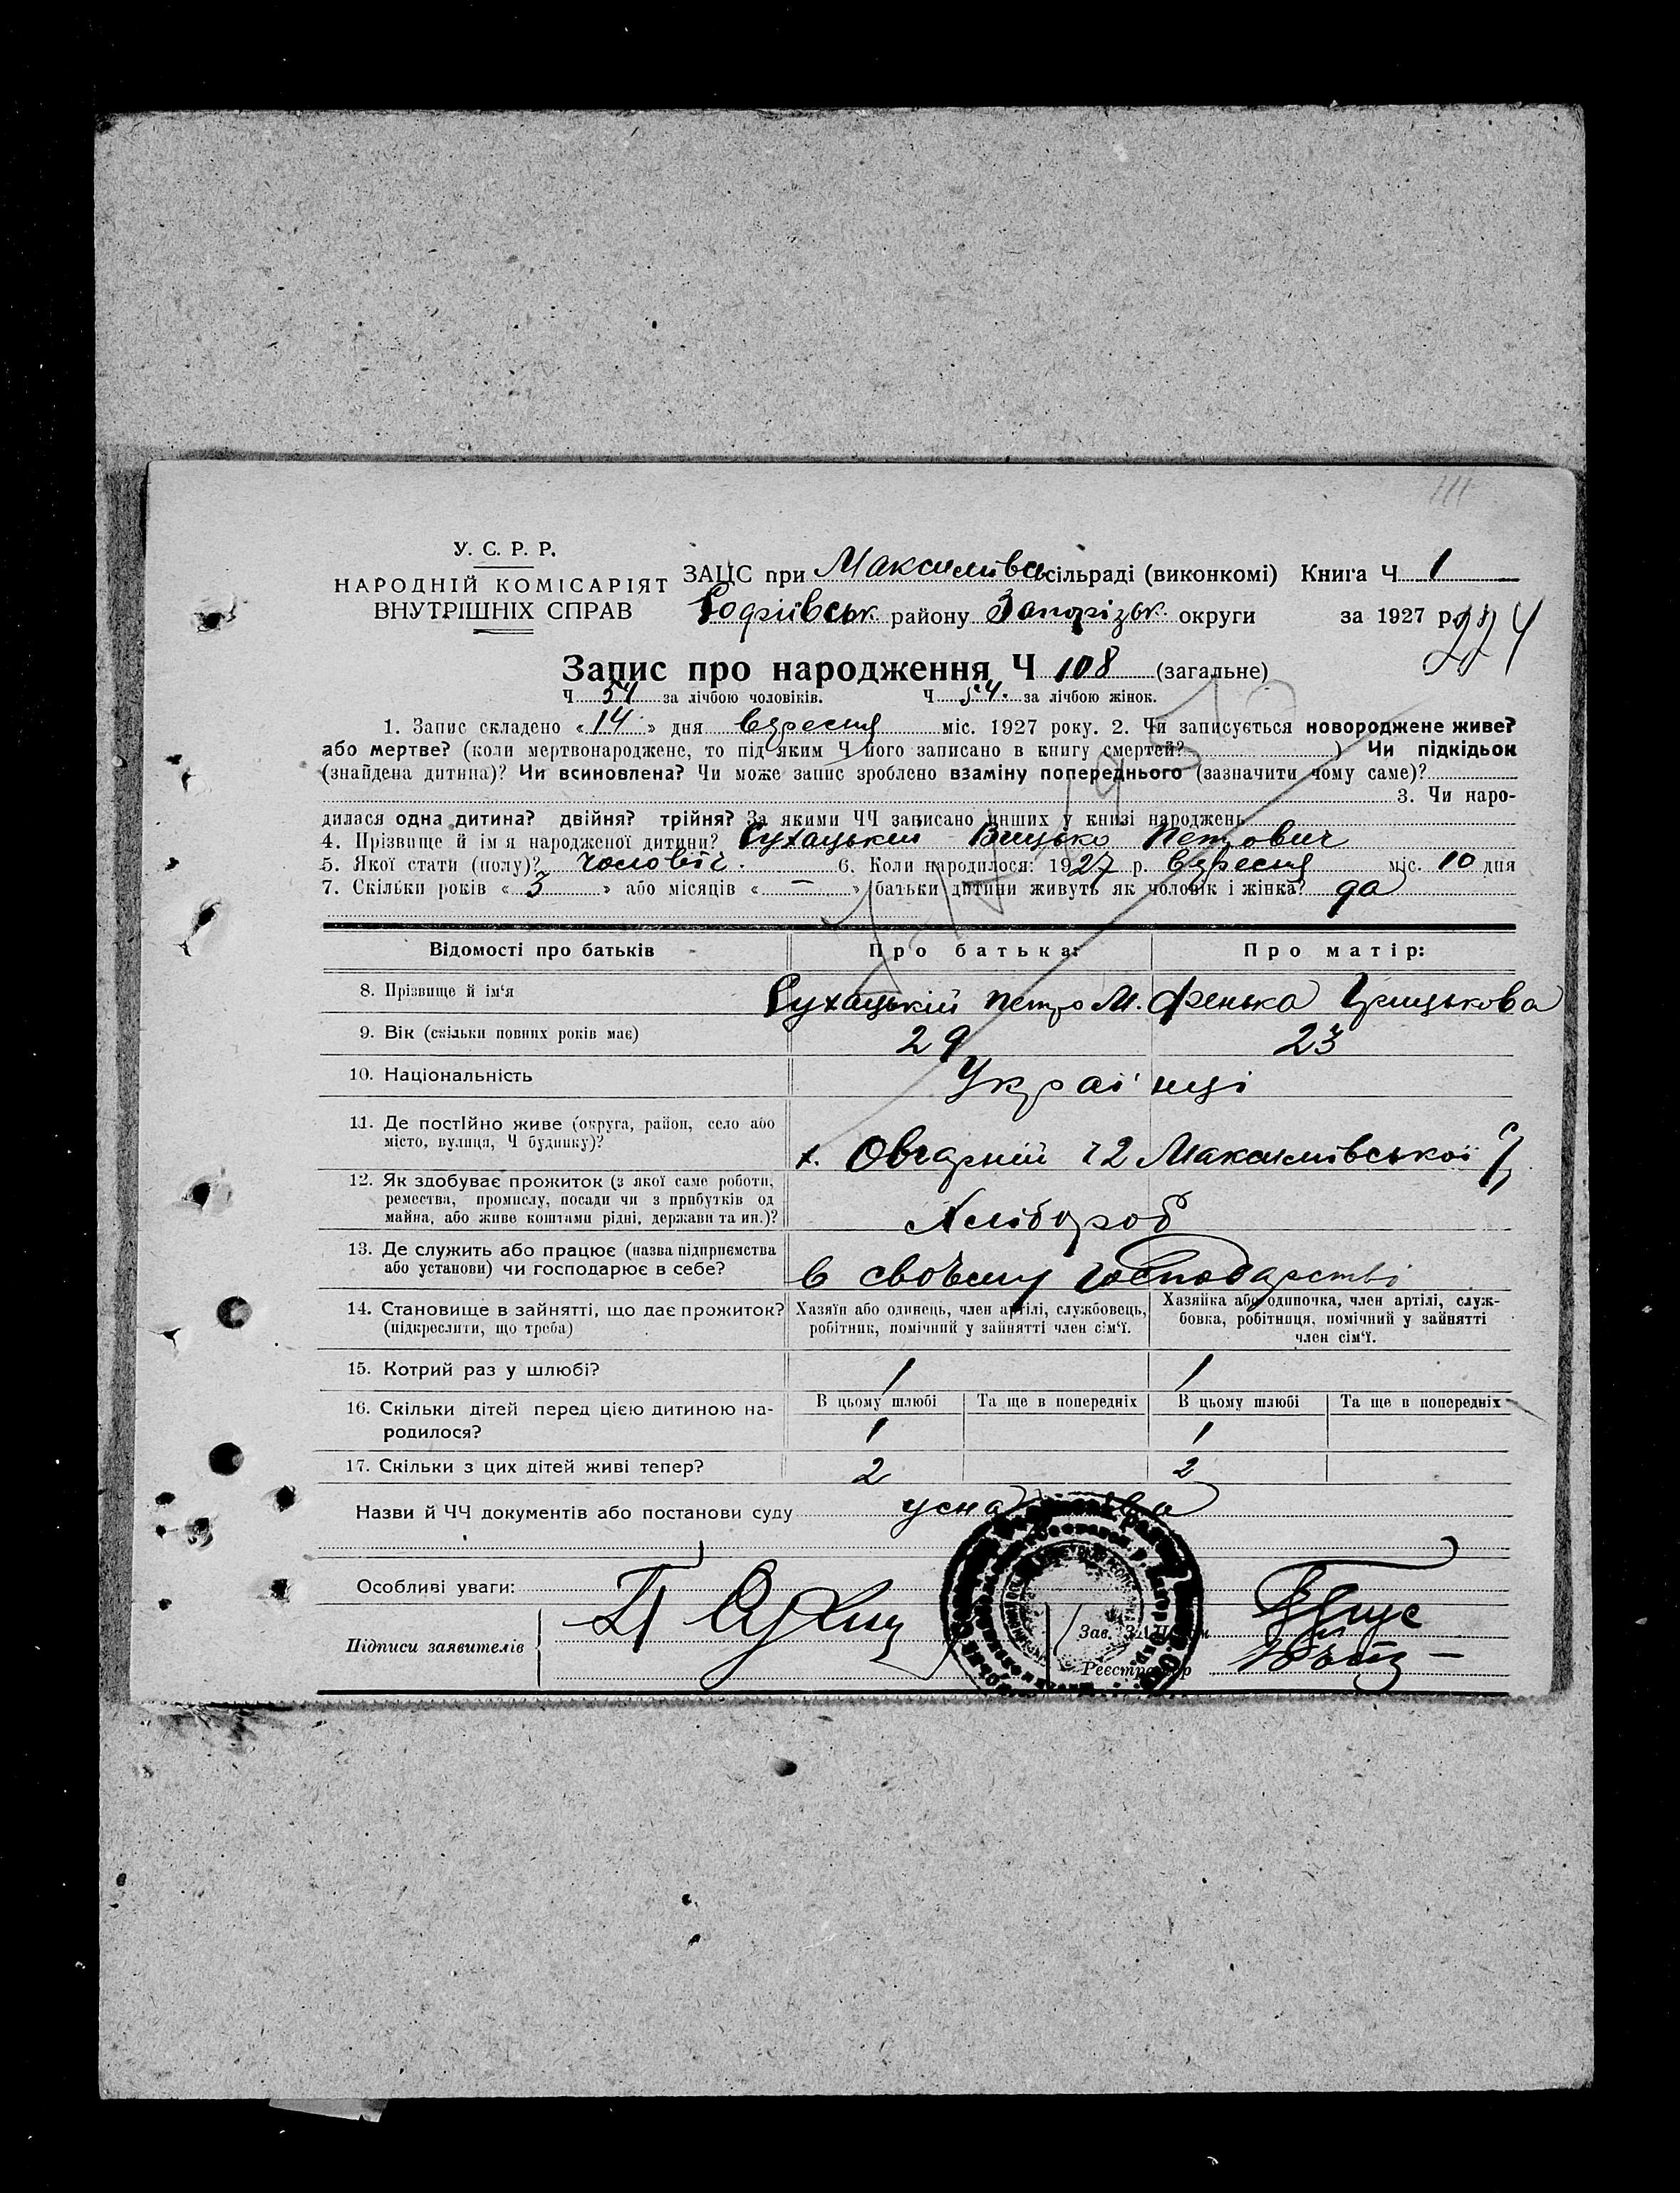 111
У. С. Р. Р.
НАРОДНІЙ КОМІСАРІЯТ
ВНУТРІШНІХ СПРАВ
ЗАЦС при Максимівск сільраді (виконкомі) Книга Ч 1
Софіївськ району Запорізьк. округи за 1927 р.
224
Запис про народження Ч 108 (загальне)
Ч 54 за лічбою чоловіків. Ч 54. за лічбою жінок.
1. Запис складено «14» дня вересня міс. 1927 року. 2. Чи записується новороджене живе?
або мертве? (коли мертвонароджене, то під яким Ч його записано в книгу смертей? ) Чи підкідьок
(знайдена дитина)? Чи всиновлена? Чи може запис зроблено взаміну попереднього (зазначити чому саме)?
3. Чи наро-
дилася одна дитина? двійня? трійня? За якими ЧЧ записано инших у книзі народжень
4. Прізвище й ім'я народженої дитини? Сухацький Вицько Петрович
5. Якої стати (полу)? чоловіч. 6. Коли народилося: 1927 р. вересня міс. 10 дня
7. Скільки років «3» або місяців « — » батьки дитини живуть як чоловік і жінка? да
Відомості про батьків Про батька: Про матір:
8. Прізвище й ім'я Сухацькій Петро М. Фенька Грицькова
9. Вік (скільки повних років має) 29 23
10. Національність Украі'нці
11. Де постійно живе (округа, район, село або
місто, вулиця, Ч будинку)? х. Овчарній ч 2 Максимівської
12. Як здобуває прожиток (з якої саме роботи,
ремества, промислу, посади чи з прибутків од
майна, або живе коштами рідні, держави та ин.)? Хлібороб
13. Де служить або працює (назва підприємства
або установи) чи господарює в себе? в своъму господарстві
14. Становище в зайнятті, що дає прожиток? Хазяїн або одинець, член артілі, службовець, Хазяйка або одиночка, член артілі, служ-
(підкреслити, що треба) робітник, помічний у зайнятті член сім'ї. бовка, робітниця, помічний у зайнятті
член сім'ї.
15. Котрий раз у шлюбі? 1 1
16. Скільки дітей перед цією дитиною на- В цьому шлюбі Та ще в попередніх В цьому шлюбі Та ще в попередніх
родилося? 1 1
17. Скільки з цих дітей живі тепер? 2 2
Назви й ЧЧ документів або постанови суду усна
Особливі уваги:
Підписи заявителів П Сухац
Зав. ЗАЦСом
Реєстратор